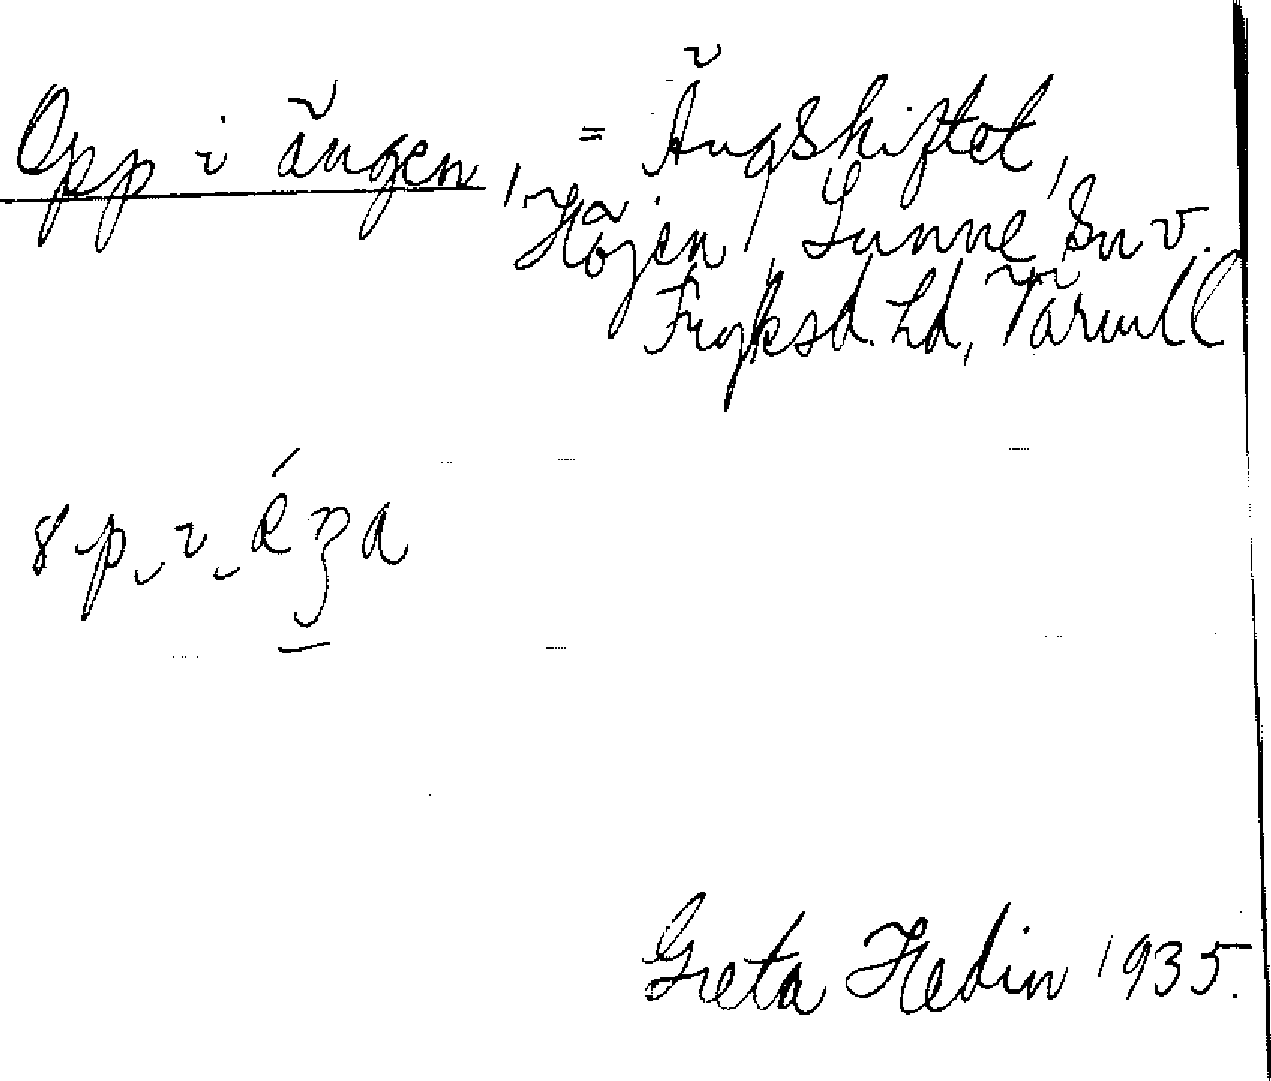 Opp i ängen, = Ängskiftet,
Höjen, Sunne Sn v.
Fryksd. Hd, Värml
Greta Hedin 1935.